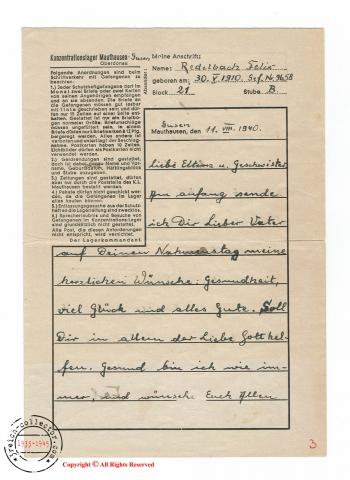 Konzentrationslager Mauthausen - Gusen,
Oberdonau
Folgende Anordnungen sind beim
Schriftverkehr mit Gefangenen zu
beachten:
1.) Jeder Schutzhaftgefangene darf im
Monat zwei Briefe oder zwei Karten
von seinen Angehörigen empfangen
und an sie absenden. Die Briefe an
die Gefangenen müssen gut lesbar
mit Tinte geschrieben sein und dürfen
nur 15 Zeilen auf einer Seite enthalten.
Gestattet ist nur ein Briefbogen
normaler Größe. Briefumschläge
müssen ungefüttert sein. In einem
Briefe dürfen nur 5 Briefmarken à 12 Pfg.
beigelegt werden. Alles andere ist
verboten und unterliegt der Beschlagnahme.
Postkarten haben 10 Zeilen.
Lichtbilder dürfen als Postkarten nicht
verwendet werden.
2.) Geldsendungen sind gestattet,
Name, Geburtsdatum, Häftlingsblock
und Stube anzugeben.
3.) Zeitungen sind gestattet, dürfen
aber nur durch die Poststelle des K.L.
Mauthausen bestellt werden.
4.) Pakete dürfen nicht geschickt werden,
da die Gefangenen im Lager
alles kaufen können.
5.) Entlassungsgesuche aus der Schutzhaft
an die Lagerleitung sind zwecklos.
6.) Sprecherlaubnis und Besuche von
Gefangenen im Konzentrations-Lager
sind grundsätzlich nicht gestattet.
Alle Post, die diesen Anforderungen
nicht entspricht, wird vernichtet.
Der Lagerkommandant
Absender:
Meine Anschrift:
Name: Redelbach Felix
geboren am: 30. V. 1910. Gef. Nr. 9658
Block 21 Stube B
Gusen
Mauthausen, den 11. VIII. 1940.
Liebe Eltern u. Geschwister,
Am anfang sende
ich Dir Lieber Vater
auf Deinen Nahmenstag meine
herzlichen Wünsche: Gesundheit,
viel Glück und alles Gute. Soll
Dir in allem der Liebe Gott hel-
fen. Gesund bin ich wie im-
mer, und wünsche Euch Allen
3
3reich-collector.com
1933-1945
Copyright © All Rights Reserved